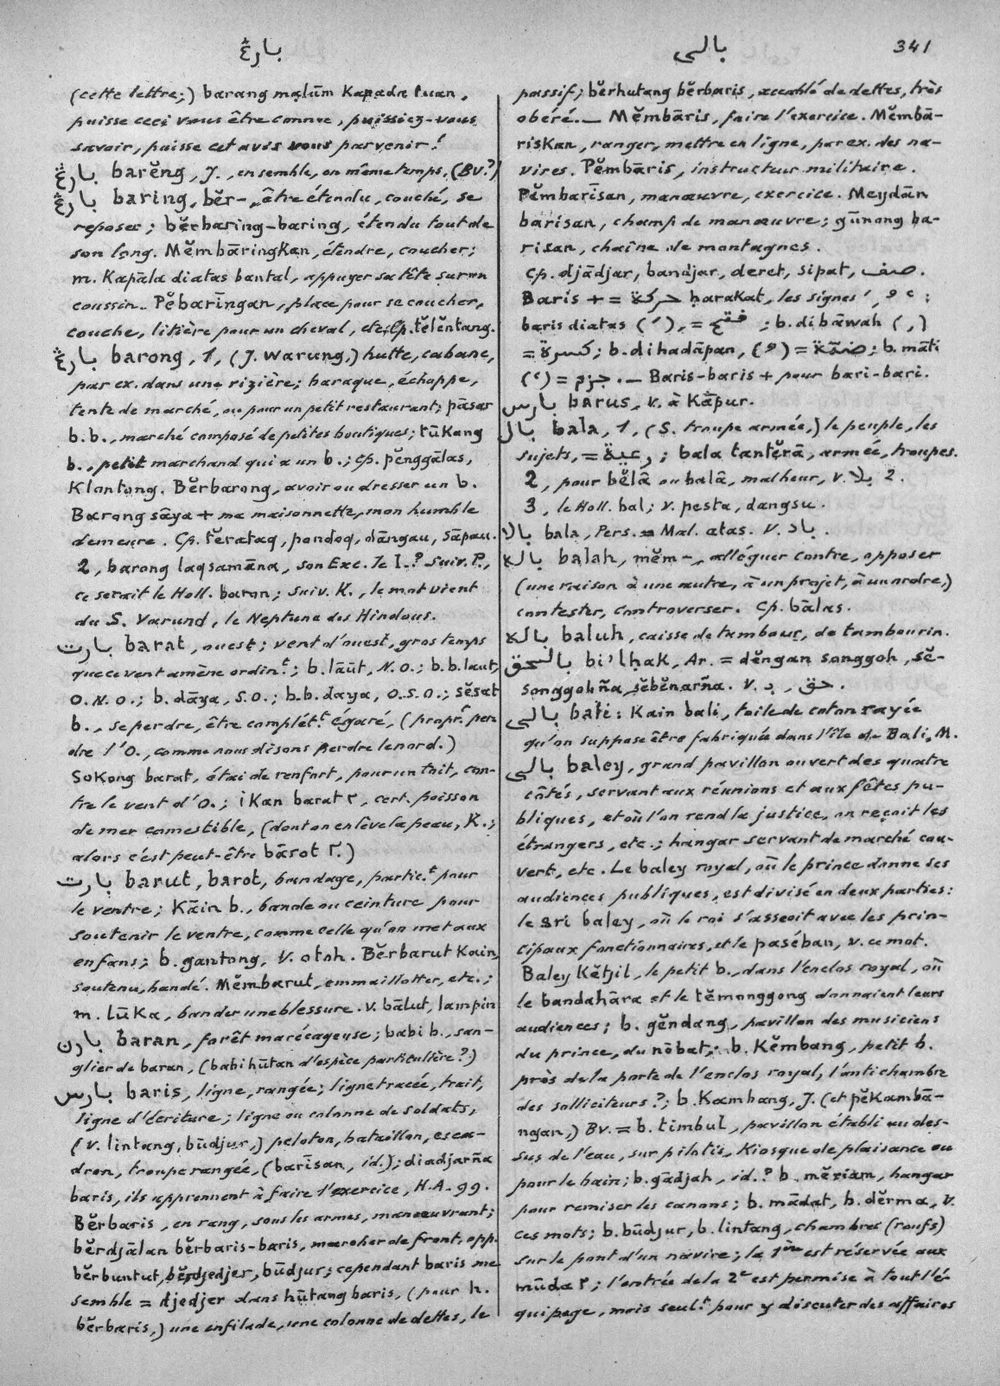 بارڠ
بالى
341
(cette lettre;) barang malūm Kapada tuan,
puisse ceci vous être connu, puissiez-vous
savoir, puisse cet avis vous parvenir!
بارڠ barĕng, J., ensemble, en même temps. (Bv.?)
بارڠ baring, bĕr-, être étendu, couché, se
reposer; bĕrbaring-baring, étendu tout de
son long. MĕmbāringKan, étendre, coucher;
m. Kapāla diatas bantal, appuyer sa tête sur un
coussin. Pĕbarīngan, place pour se coucher,
couche, litière pour un cheval, etc. Cp. tĕlĕntang.
بارڠ barong, 1, (J. warung,) hutte, cabane,
par ex. dans une rizière; baraque, échoppe,
tente de marché, ou pour un petit restaurant; pāsar
b.b., marché composé de petites boutiques; tūKang
b., petit marchand qui a un b.; Cp. pĕnggālas,
Klontong. Bĕrbarong, avoir ou dresser un b.
Barong sāya + ma maisonnette, mon humble
demeure. Cp. tĕrataq, pondoq, dāngau, sāpau.
2, barong laqsamāna, son Exc. le l.? Suiv. P.,
ce serait le Holl. baron; suiv. K., le mot vient
du S. Varund, le Neptune des Hindous.
بارت barat, ouest; vent d'ouest, gros temps
que ce vent amène ordin.t; b. lāūt, N.O.; b.b. laut,
O.N.O.; b. dāya, S.O.; b.b. daya, O.S.O.; sĕsat
b., se perdre, être complét.t égaré, (propr.t per-
dre l'O., comme nous disons perdre le nord.)
SoKong barat, étai de renfort, pour un toit, con-
tre le vent d'O.; iKan barat ٢, cert. poisson
de mer comestible, (dont on enlève la peau, K.;
alors c'est peut-être bārot ٢.)
بارت barut, barot, bandage, partic.t pour
le ventre; Kāin b., bande ou ceinture pour
soutenir le ventre, comme celle qu'on met aux
enfans; b. gantong, v. otoh. Bĕrbarut Kain,
soutenu, bandé. Mĕmbarut, emmaillotter, etc.;
m. lūKa, bander une blessure. v. bālut, lampin
بارن baran, forêt marécageuse; babi b., san-
glier de baran, (babi hūtan d'espèce particulière?)
بارس baris, ligne, rangée; ligne tracée, trait,
ligne d'écriture; ligne ou colonne de soldats,
(v. lintang, būdjur,) peloton, bataillon, esca-
dron, troupe rangée, (barīsan, id.); diadjarña
baris, ils apprennent à faire l'exercice, H.A. 99.
Bĕrbaris, en rang, sous les armes, manœuvrant;
bĕrdjālan bĕrbaris-baris, marcher de front, opp.
bĕrbuntut, bĕrdjedjer, būdjur; cependant baris me
semble = djedjer dans hūtang baris, (pour h.
bĕrbaris,) une enfilade, une colonne de dettes, le
passif; bĕrhutang bĕrbaris, accablé de dettes, très
obéré. — Mĕmbāris, faire l'exercice. Mĕmbā-
risKan, ranger, mettre en ligne, par ex. des na-
vires. Pĕmbāris, instructeur militaire.
Pĕmbarīsan, manœuvre, exercice. Meydān
bārisan, champ de manœuvre; gūnong ba-
risan, chaîne de montagnes.
Cp. djādjar, bandjar, deret, sipat, صف.
Baris + = حركة ḥarakat, les signes
baris diatas = فتح; b. dibāwah
= كسرة; b. dihadāpan, = ضمّة; b. māti
= جزم. — Baris-baris + pour bari-bari.
بارس barus, v. à Kāpur.
بال bala, 1, (S. troupe armée,) le peuple, les
sujets, = رعية; bala tantĕrā, armée, troupes.
2, pour bĕlā ou balā, malheur, v. بلا 2.
3, le Holl. bal; v. pesta, dangsu.
بالا bala, Pers. = Mal. atas. V. باد.
باله balah, mĕm-, alléguer contre, opposer
(une raison à une autre, à un projet, à un ordre,)
contester, controverser. Cp. bālas.
باله baluh, caisse de tambour, de tambourin.
بالحق bi'lḥak, Ar. = dĕngan songgoh, sĕ-
songgohña, sĕbĕnarña. V. حق, بـ.
بالى bali: Kain bali, toile de coton rayée
qu'on suppose être fabriquée dans l'île de Bali, M.
بالى baley, grand pavillon ouvert des quatre
côtés, servant aux réunions et aux fêtes pu-
bliques, et où l'on rend la justice, on reçoit les
étrangers, etc.; hangar servant de marché cou-
vert, etc. Le baley royal, où le prince donne ses
audiences publiques, est divisé en deux parties:
le sri baley, où le roi s'asseoit avec les prin-
cipaux fonctionnaires, et le paséban, v. ce mot.
Baley Kĕtjil, le petit b., dans l'enclos royal, où
le bandahāra et le tĕmonggong donnaient leurs
audiences; b. gĕndang, pavillon des musiciens
du prince, du nōbat; b. Kĕmbang, petit b.
près de la porte de l'enclos royal, l'antichambre
des solliciteurs?; b. Kambang, J. (et pĕKambā-
ngan,) Bv. = b. timbul, pavillon établi au des-
sus de l'eau, sur pilotis, Kiosque de plaisance ou
pour le bain; b. gādjah, id.? b. mĕriam, hangar
pour remiser les canons; b. mādat, b. dĕrma, v.
ces mots; b. būdjur, b. lintang, chambres (roufs)
sur le pont d'un navire; la 1ère est réservée aux
mūda ٢; l'entrée de la 2e est permise à tout l'é-
quipage, mais seul.t pour y discuter des affaires